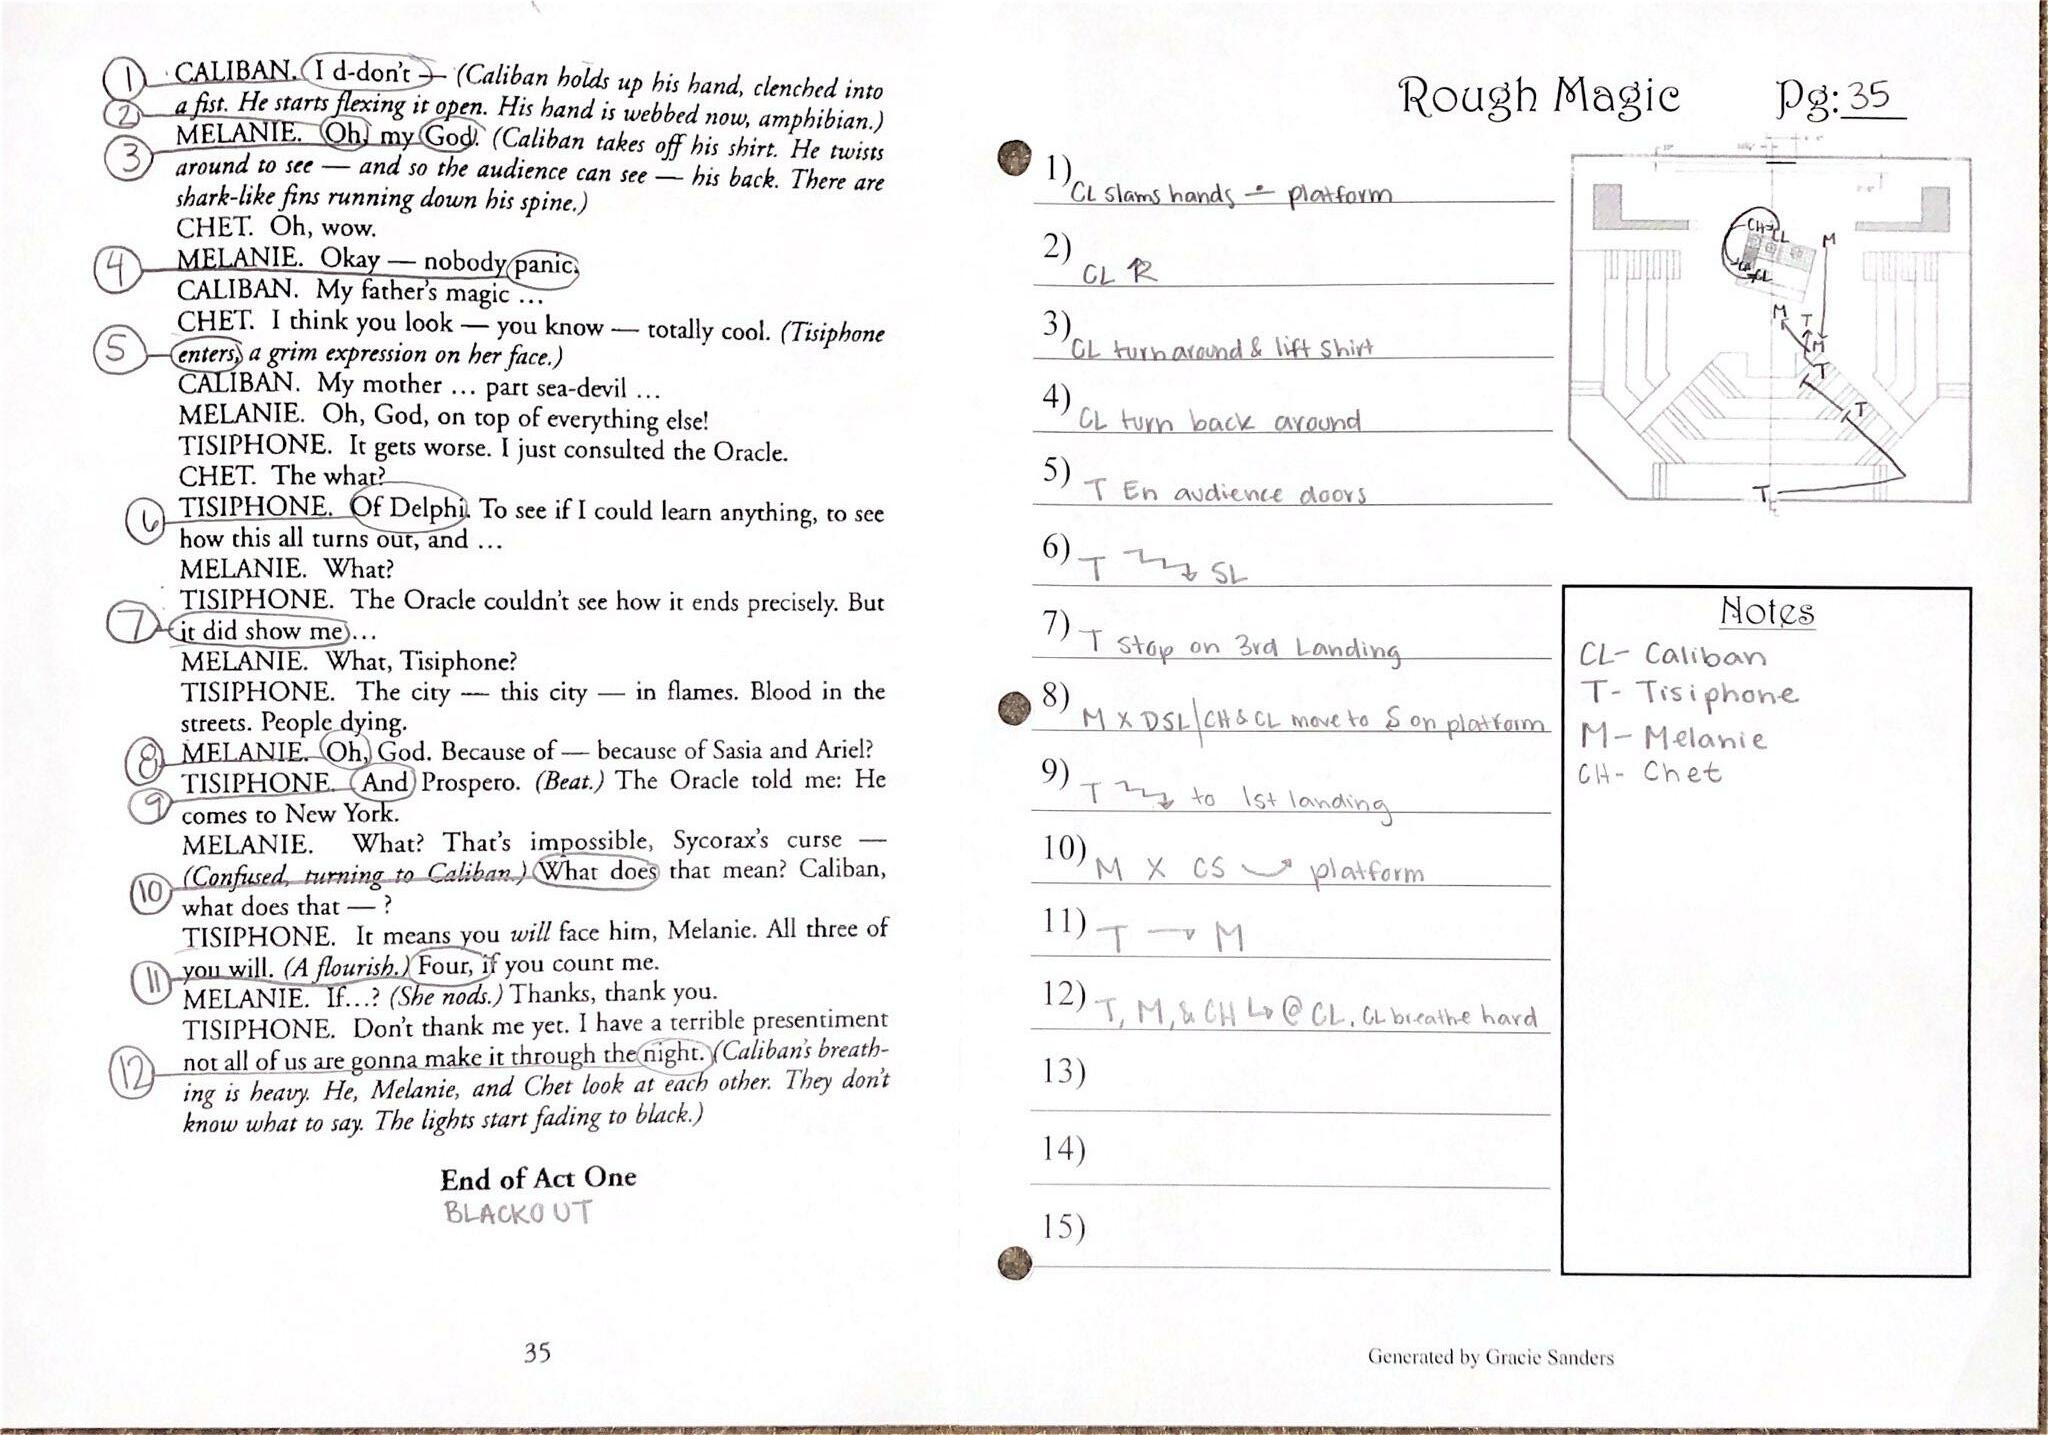 1 CALIBAN. I d-don't — (Caliban holds up his hand, clenched into
2 a fist. He starts flexing it open. His hand is webbed now, amphibian.)
3 MELANIE. Oh, my God. (Caliban takes off his shirt. He twists
around to see — and so the audience can see — his back. There are
shark-like fins running down his spine.)
CHET. Oh, wow.
4 MELANIE. Okay — nobody panic.
CALIBAN. My father's magic ...
CHET. I think you look — you know — totally cool. (Tisiphone
5 enters, a grim expression on her face.)
CALIBAN. My mother ... part sea-devil ...
MELANIE. Oh, God, on top of everything else!
TISIPHONE. It gets worse. I just consulted the Oracle.
CHET. The what?
6 TISIPHONE. Of Delphi. To see if I could learn anything, to see
how this all turns out, and ...
MELANIE. What?
TISIPHONE. The Oracle couldn't see how it ends precisely. But
7 it did show me ...
MELANIE. What, Tisiphone?
TISIPHONE. The city — this city — in flames. Blood in the
streets. People dying.
8 MELANIE. Oh, God. Because of — because of Sasia and Ariel?
9 TISIPHONE. And Prospero. (Beat.) The Oracle told me: He
comes to New York.
MELANIE. What? That's impossible, Sycorax's curse —
10 (Confused, turning to Caliban.) What does that mean? Caliban,
what does that — ?
TISIPHONE. It means you will face him, Melanie. All three of
11 you will. (A flourish.) Four, if you count me.
MELANIE. If...? (She nods.) Thanks, thank you.
TISIPHONE. Don't thank me yet. I have a terrible presentiment
12 not all of us are gonna make it through the night. (Caliban's breath-
ing is heavy. He, Melanie, and Chet look at each other. They don't
know what to say. The lights start fading to black.)
End of Act One
BLACKOUT
35
Rough Magic Pg: 35
1) CL slams hands platform
2) CL
3) CL turn around & lift shirt
4) CL turn back around
5) T En audience doors
6) T SL
7) T stop on 3rd Landing
8) M X DSL/CH & CL move to S on platform
9) T to 1st landing
10) M X CS platform
11) T → M
12) T, M, & CH ↳ @ CL, CL breathe hard
13)
14)
15)
CH CL
M
CL
M T
M
T
T
T
Notes
CL- Caliban
T- Tisiphone
M- Melanie
CH- Chet
Generated by Gracie Sanders